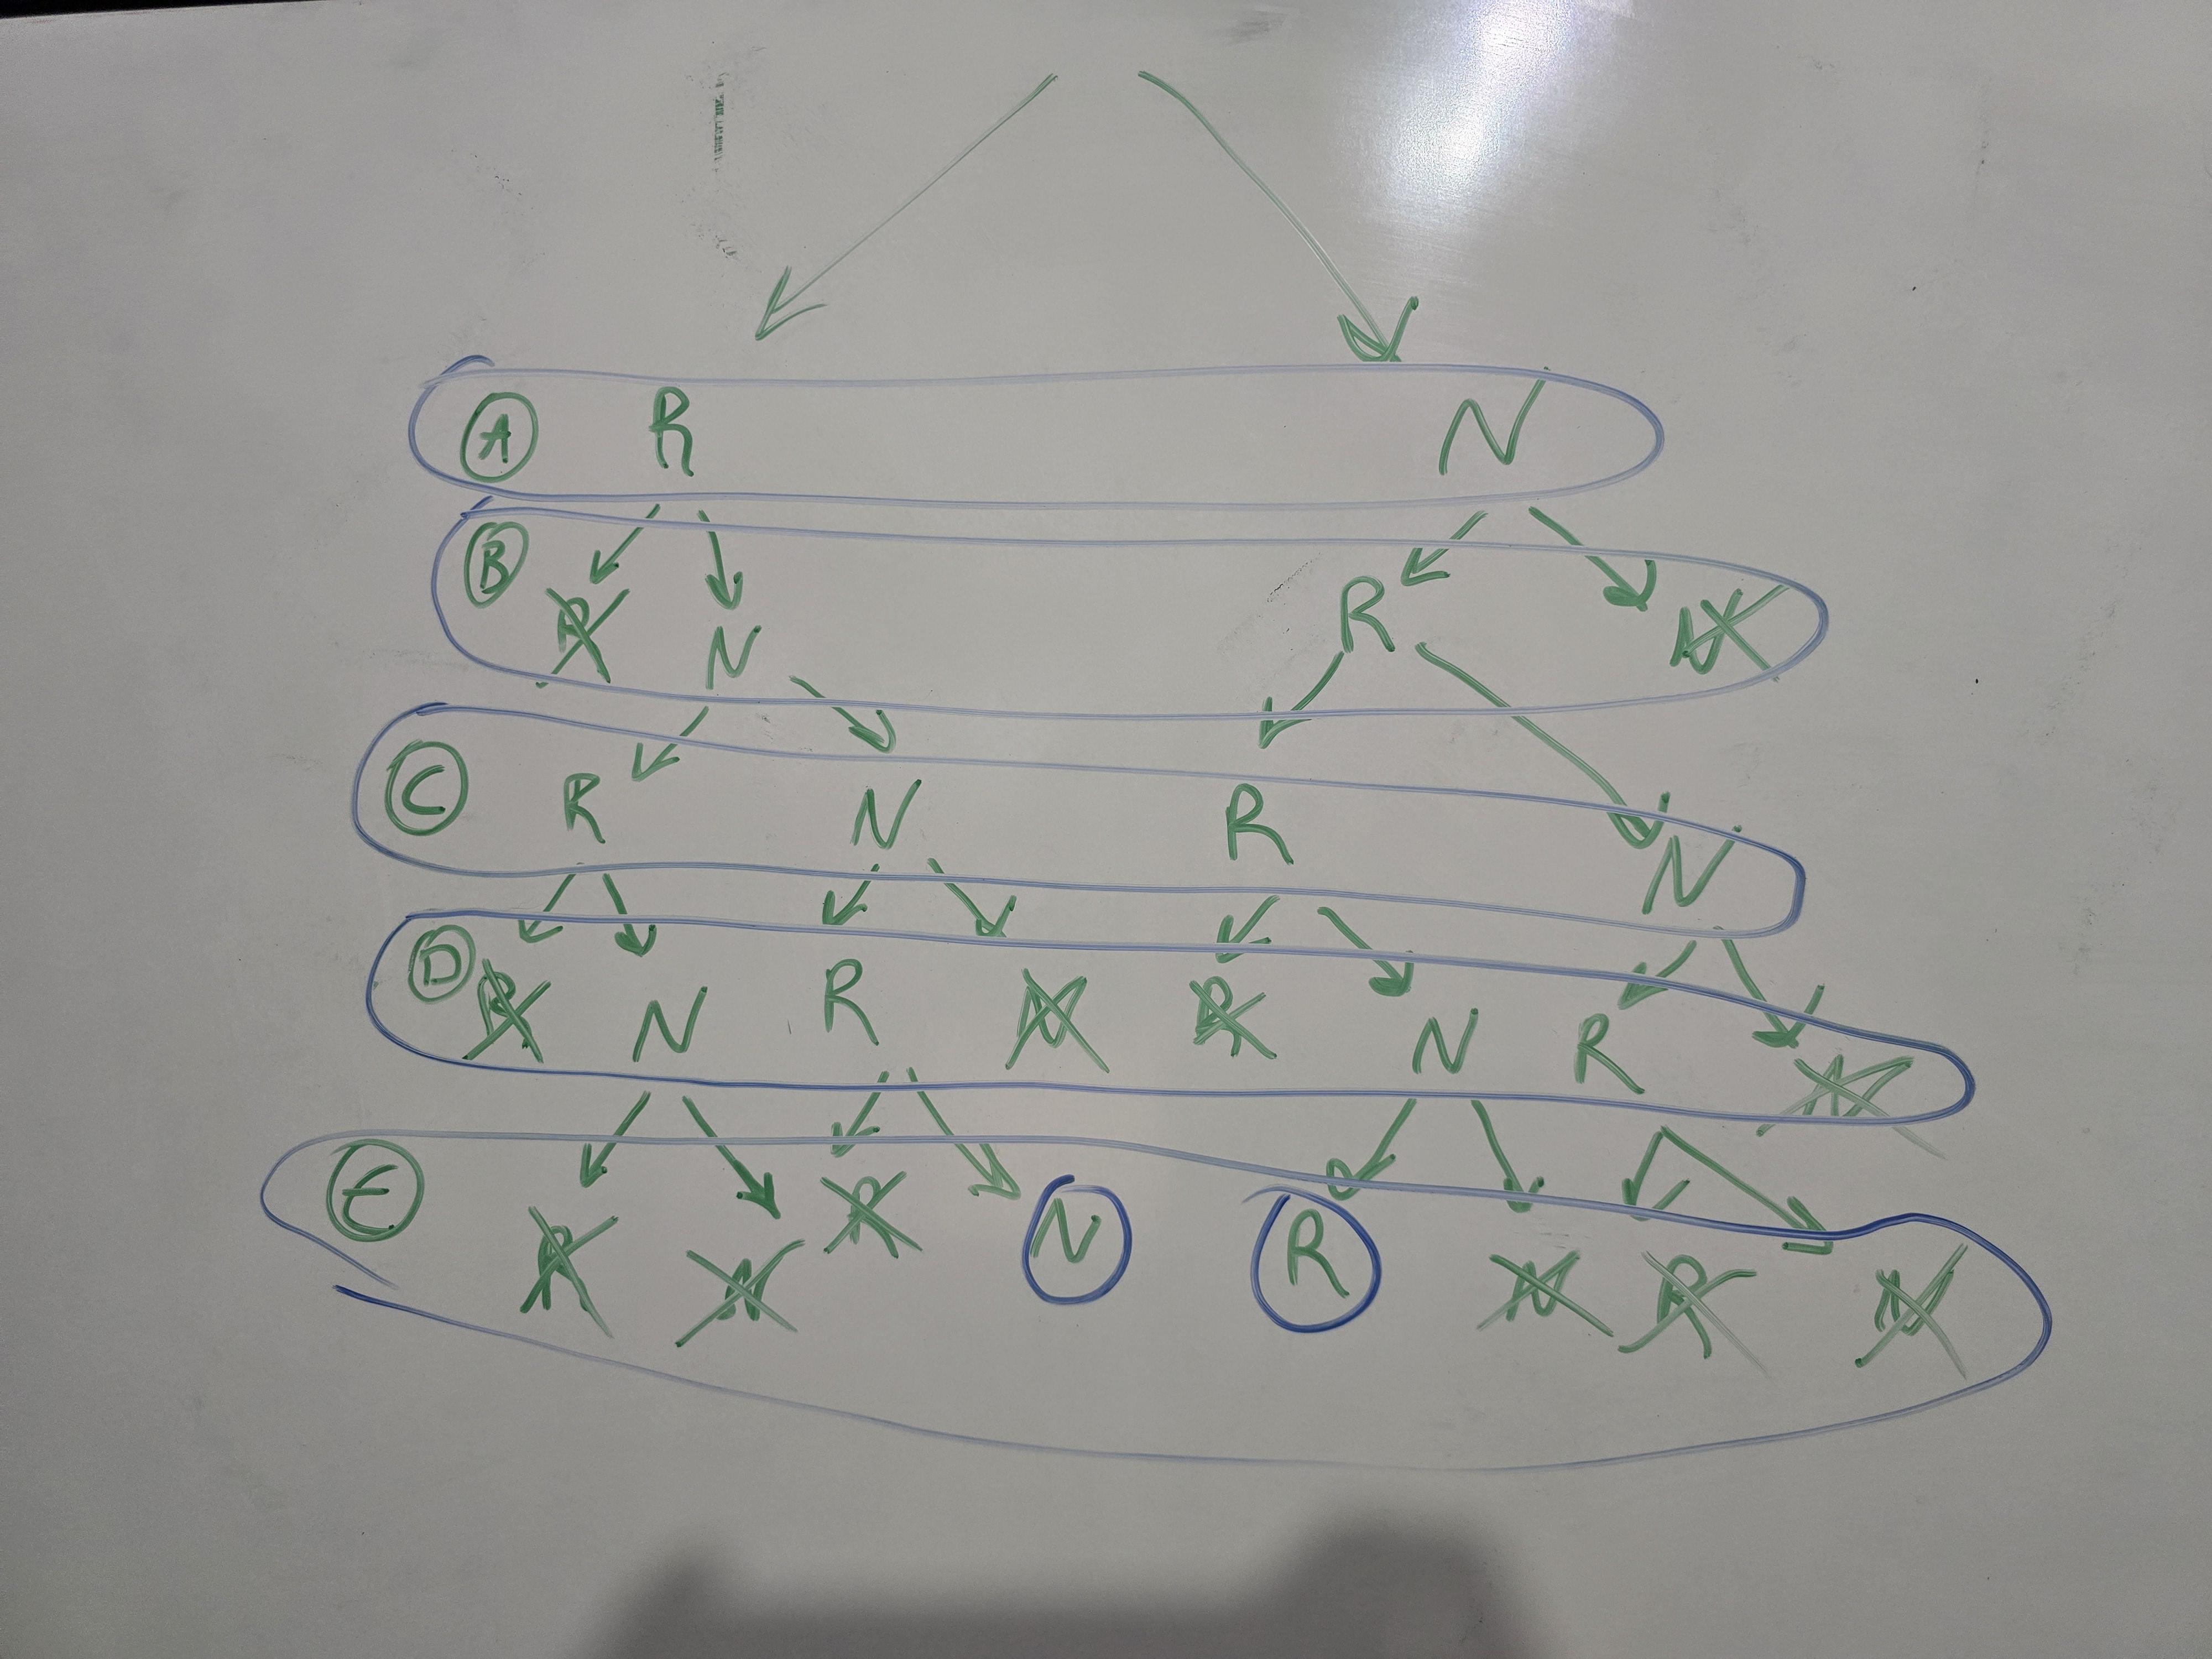 A R N
B R N R N
C R N R N
D R N R N R N R N
E R N R N R N R N